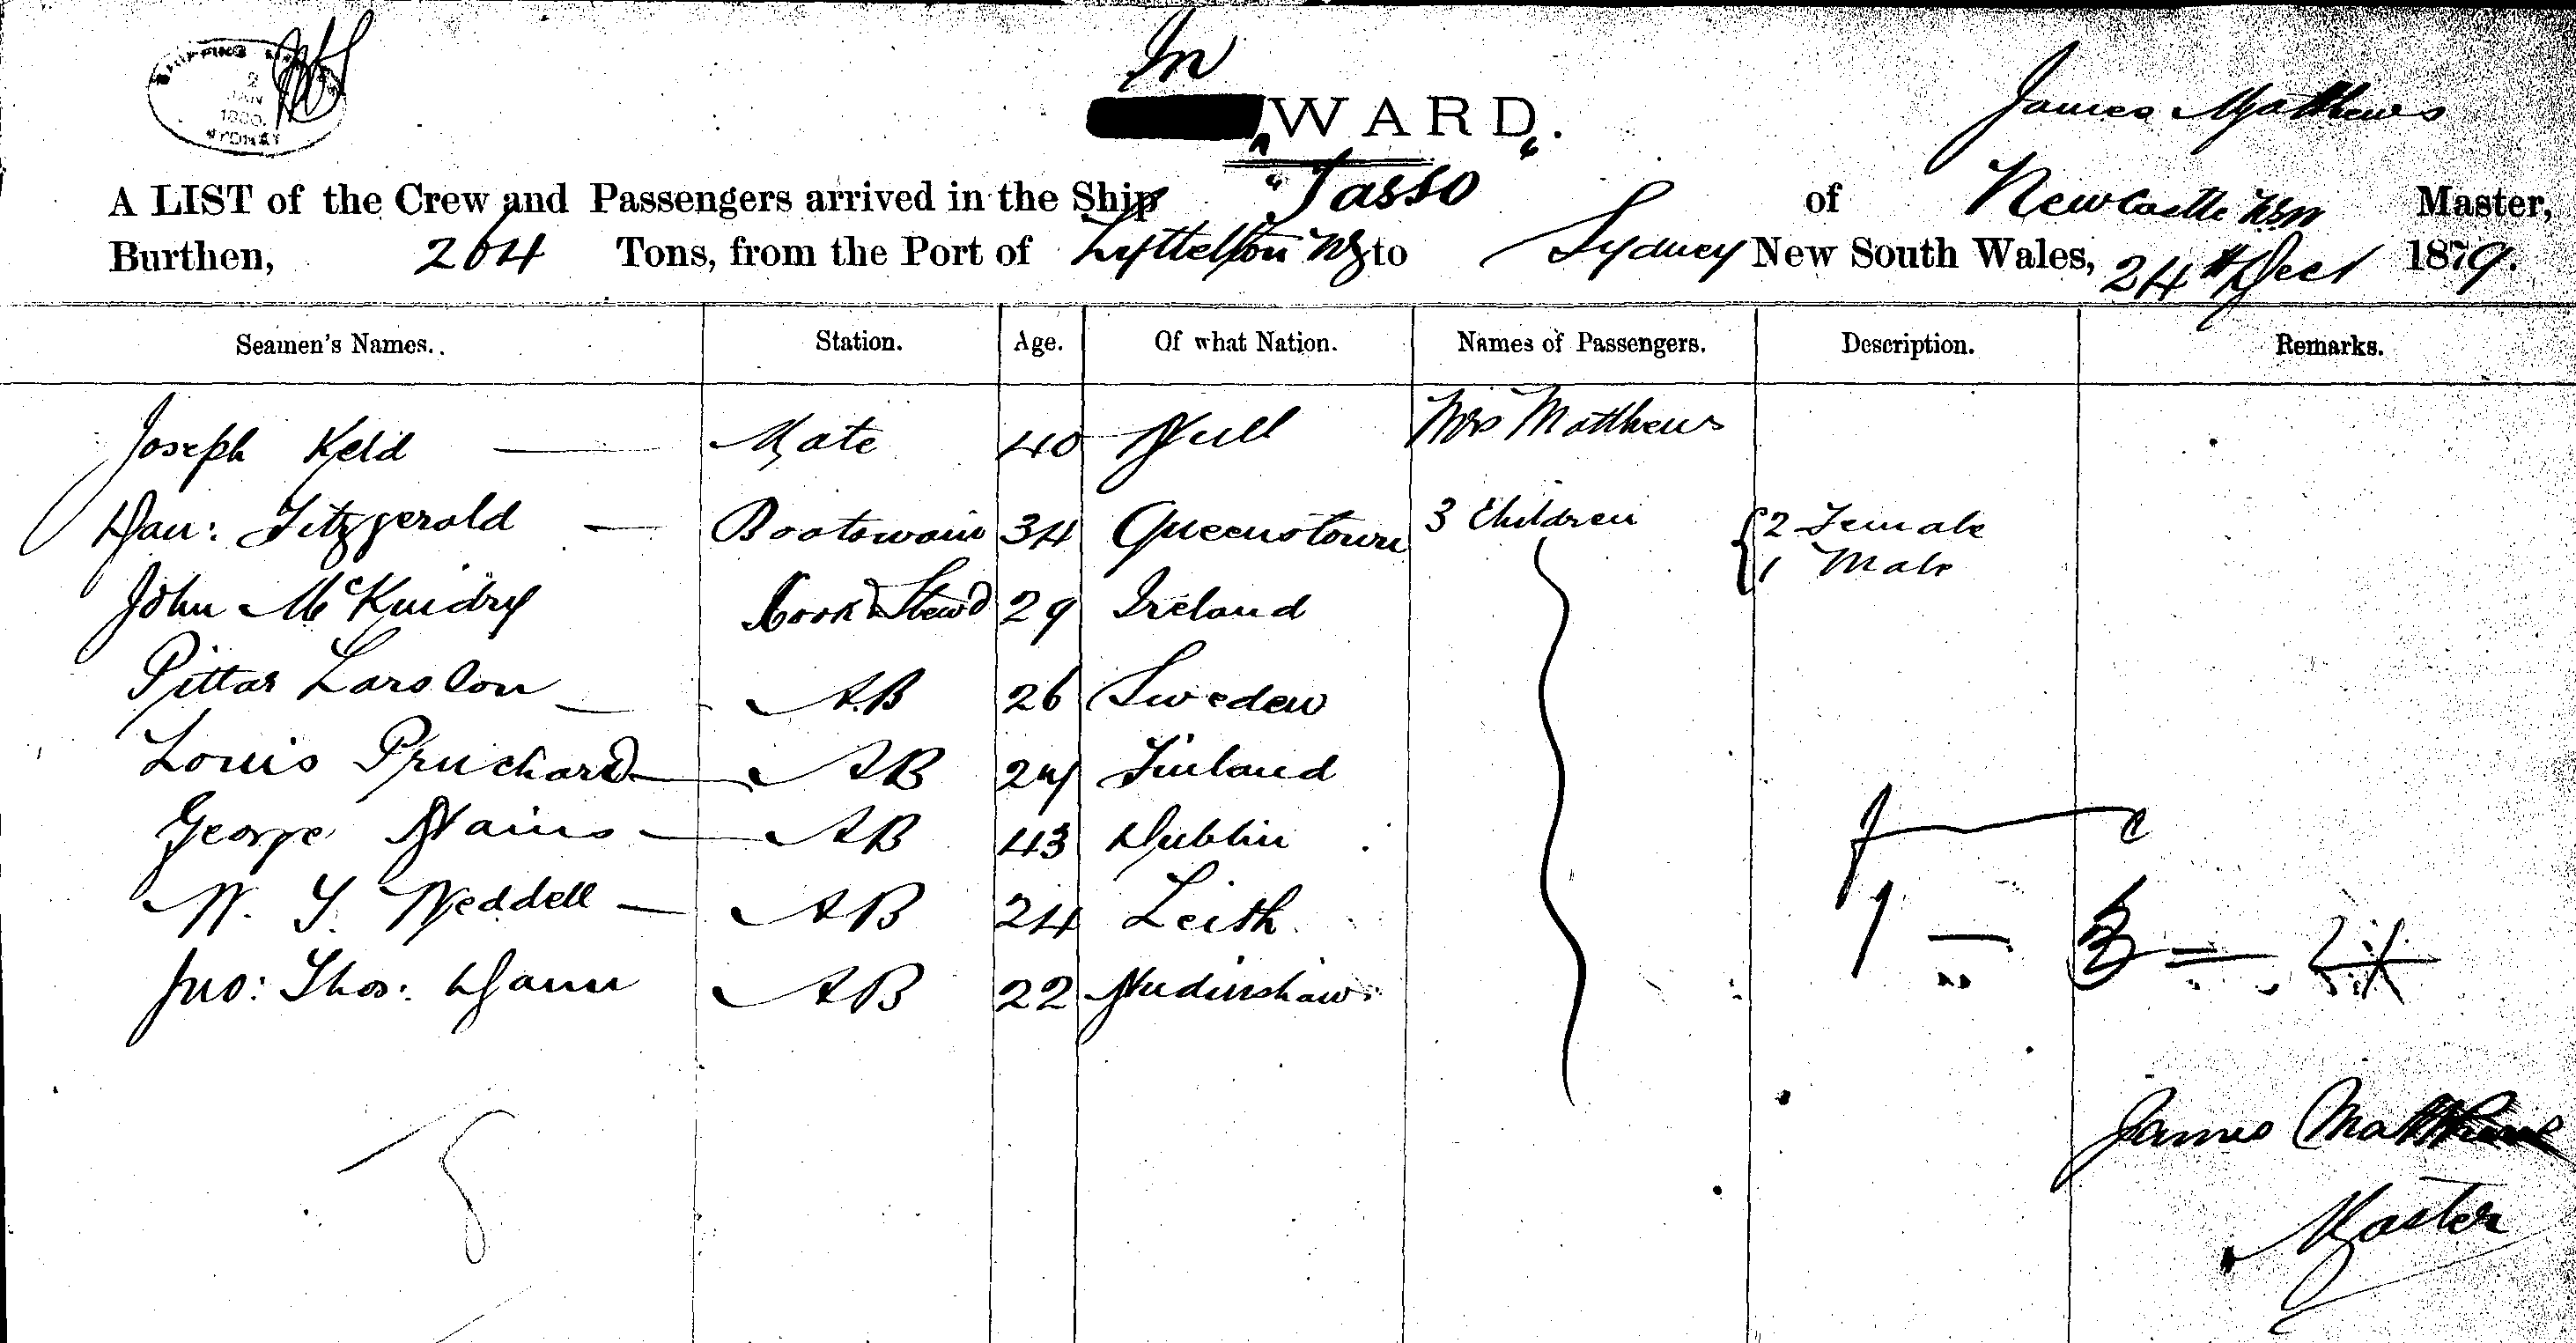 SHIPPING
2
JAN
1880.
SYDNEY
In
WARD.
James Matthews
A LIST of the Crew and Passengers arrived in the Ship "Tasso" of Newcastle NSW Master,
Burthen, 264 Tons, from the Port of Lyttelton NZ to Sydney New South Wales, 24th Decr 1879.
Seamen's Names. Station. Age. Of what Nation. Names of Passengers. Description. Remarks.
Joseph Keld Mate 40 Hull Mrs Matthews
Dan: Fitzgerald Boatswain 34 Queenstown 3 Children 2 Female
1 Male
John McKindry Cook & Stewd 29 Ireland
Pittar Larsson AB 26 Sweden
Louis Pruchard AB 24 Finland
George Hains AB 43 Dublin
W. Y. Weddell AB 24 Leith
Jno: Thos: Dann AB 22
James Matthews
Master